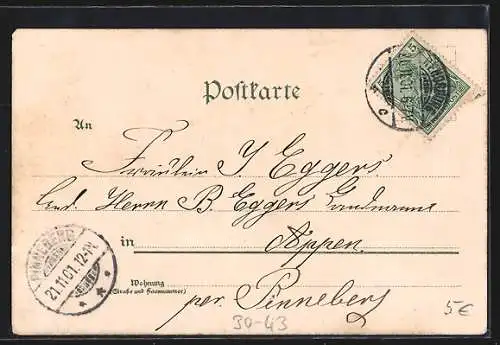 Postkarte
An
Fräulein I. Eggers
Herrn B. Eggers Landmann
in Appen.
Wohnung
(Straße und Hausnummer)
per. Pinneberg
PINNEBERG
21.11.01. 12-1N.
30-43
5€